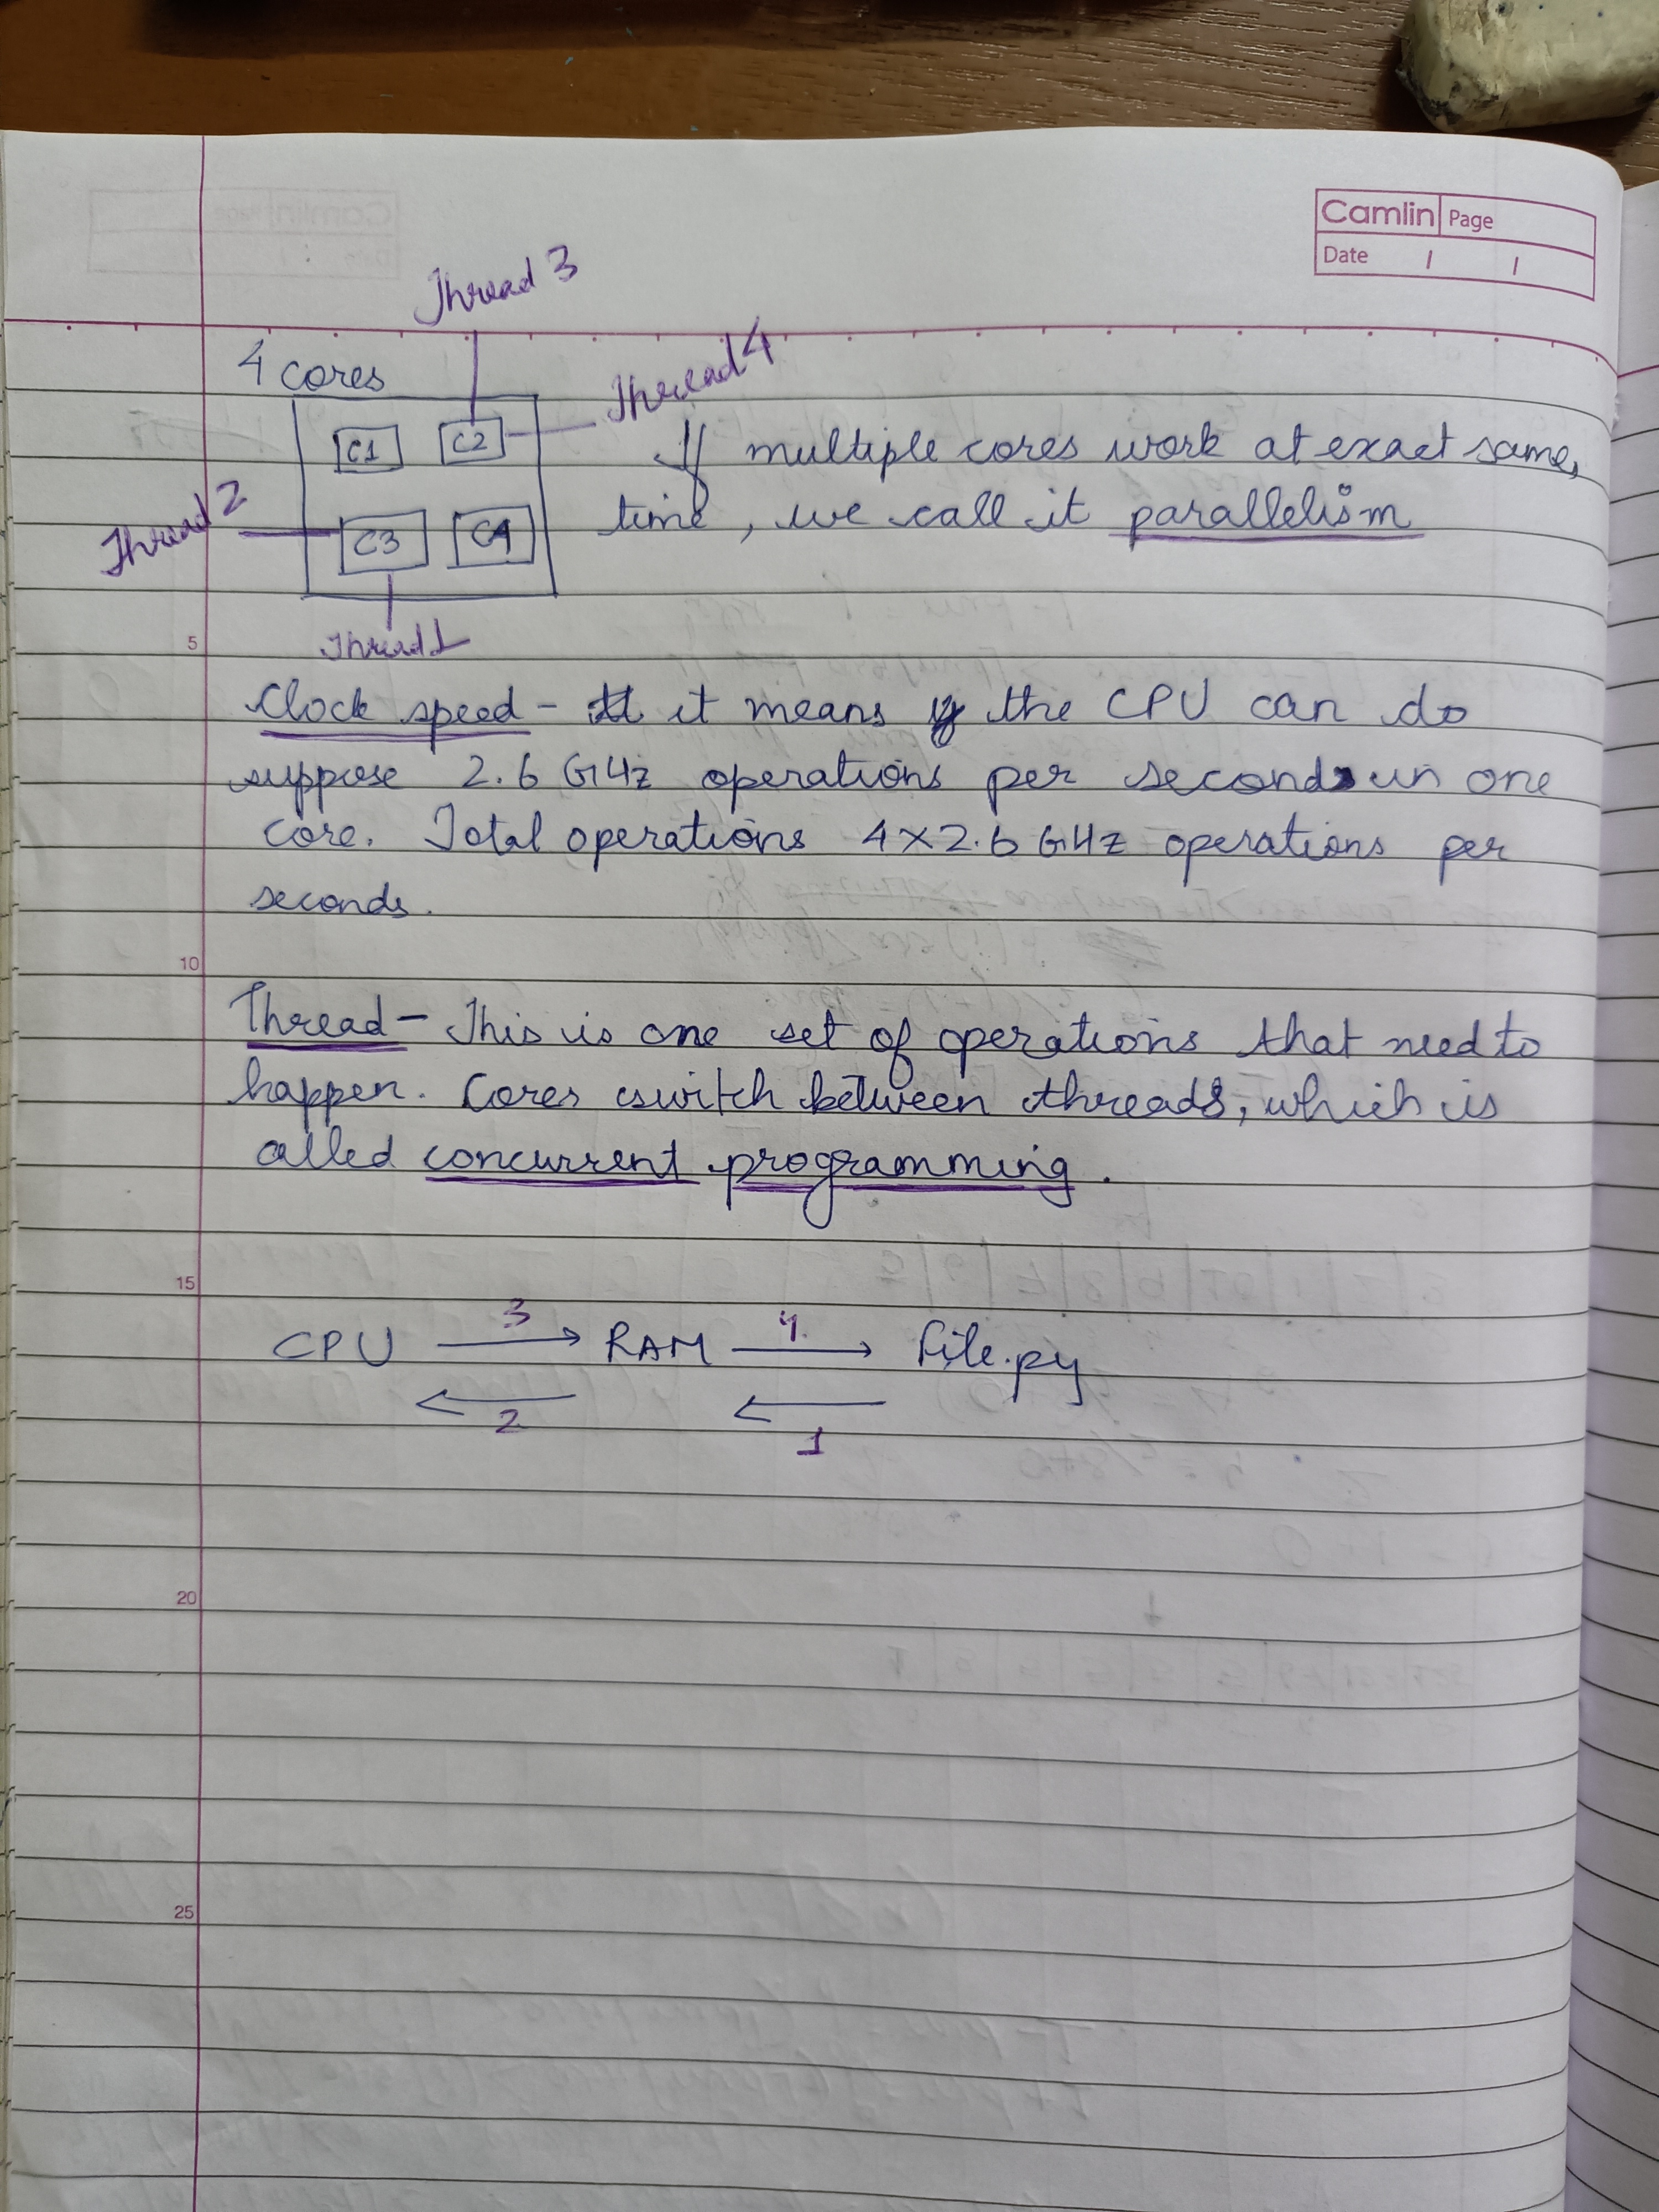 Camlin Page
Date / /
Thread 3
4 cores
Thread 4
C1 C2
If multiple cores work at exact same,
Thread 2
time, we call it parallelism
C3 C4
Thread 1
5
Clock speed - it means the CPU can do
suppose 2.6 GHz operations per seconds in one
core. Total operations 4×2.6 GHz operations per
seconds.
10
Thread - This is one set of operations that need to
happen. Cores switch between threads, which is
called concurrent programming.
15
3 4
CPU → RAM → File.py
← ←
2 1
20
25